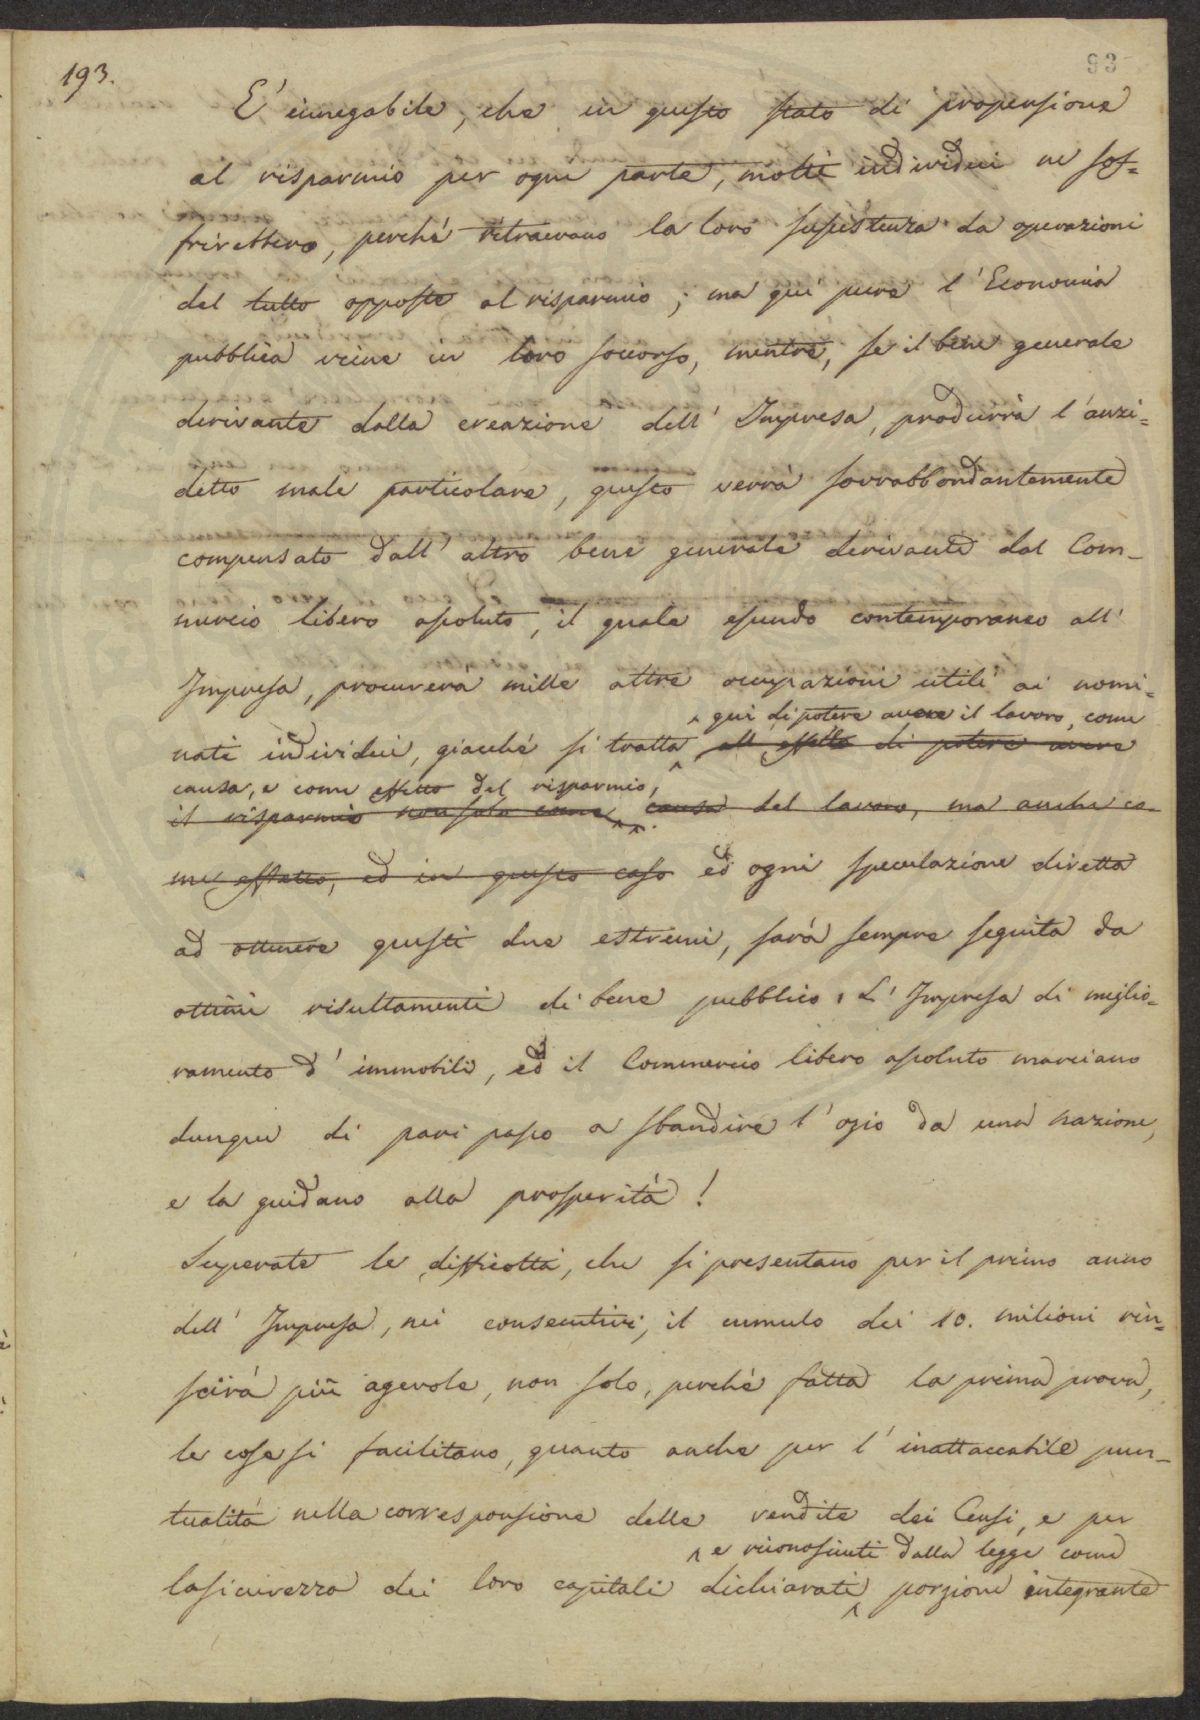 193.
93
E' innegabile, che in questo stato di propensione
al risparmio per ogni parte, molti individui ne sof=
frirebbero, perché ritraevano la loro sussistenza da operazioni
del tutto opposte al risparmio; ma qui pure l'Economia
pubblica viene in loro soccorso, mentre, se il bene generale
derivante dalla creazione dell'Impresa, produrrà l'anzi=
detto male particolare, questo verrà sovrabbondantemente
compensato dall'altro bene generale derivante dal Com-
mercio libero assoluto, il quale essendo contemporaneo all'
Impresa, procurerà mille altre occupazioni utili ai nomi=
qui di potere avere il lavoro, come
nati individui, giacché si tratta all'effetto di potere avere
causa, e come effetto del risparmio,
il risparmio non solo come causa del lavoro, ma anche co-
me effetto, ed in questo caso ed ogni speculazione diretta
ad ottenere questi due estremi, sarà sempre seguita da
ottimi risultamenti di bene pubblico. L'Impresa di miglio=
ramento d'immobili, ed il Commercio libero assoluto marciano
dunque di pari passo a sbandire l'ozio da una nazione,
e la guidano alla prosperità!
Superate le difficoltà, che si presentano per il primo anno
dell'Impresa, nei consecutivi, il cumulo dei 10. milioni riu=
scirà più agevole, non solo, perché fatta la prima prova,
le cose si facilitano, quanto anche per l'inattaccabile pun-
tualità nella corresponsione delle rendite dei Censi, e per
e riconosciuti dalla legge come
la sicurezza dei loro capitali dichiarati porzione integrante